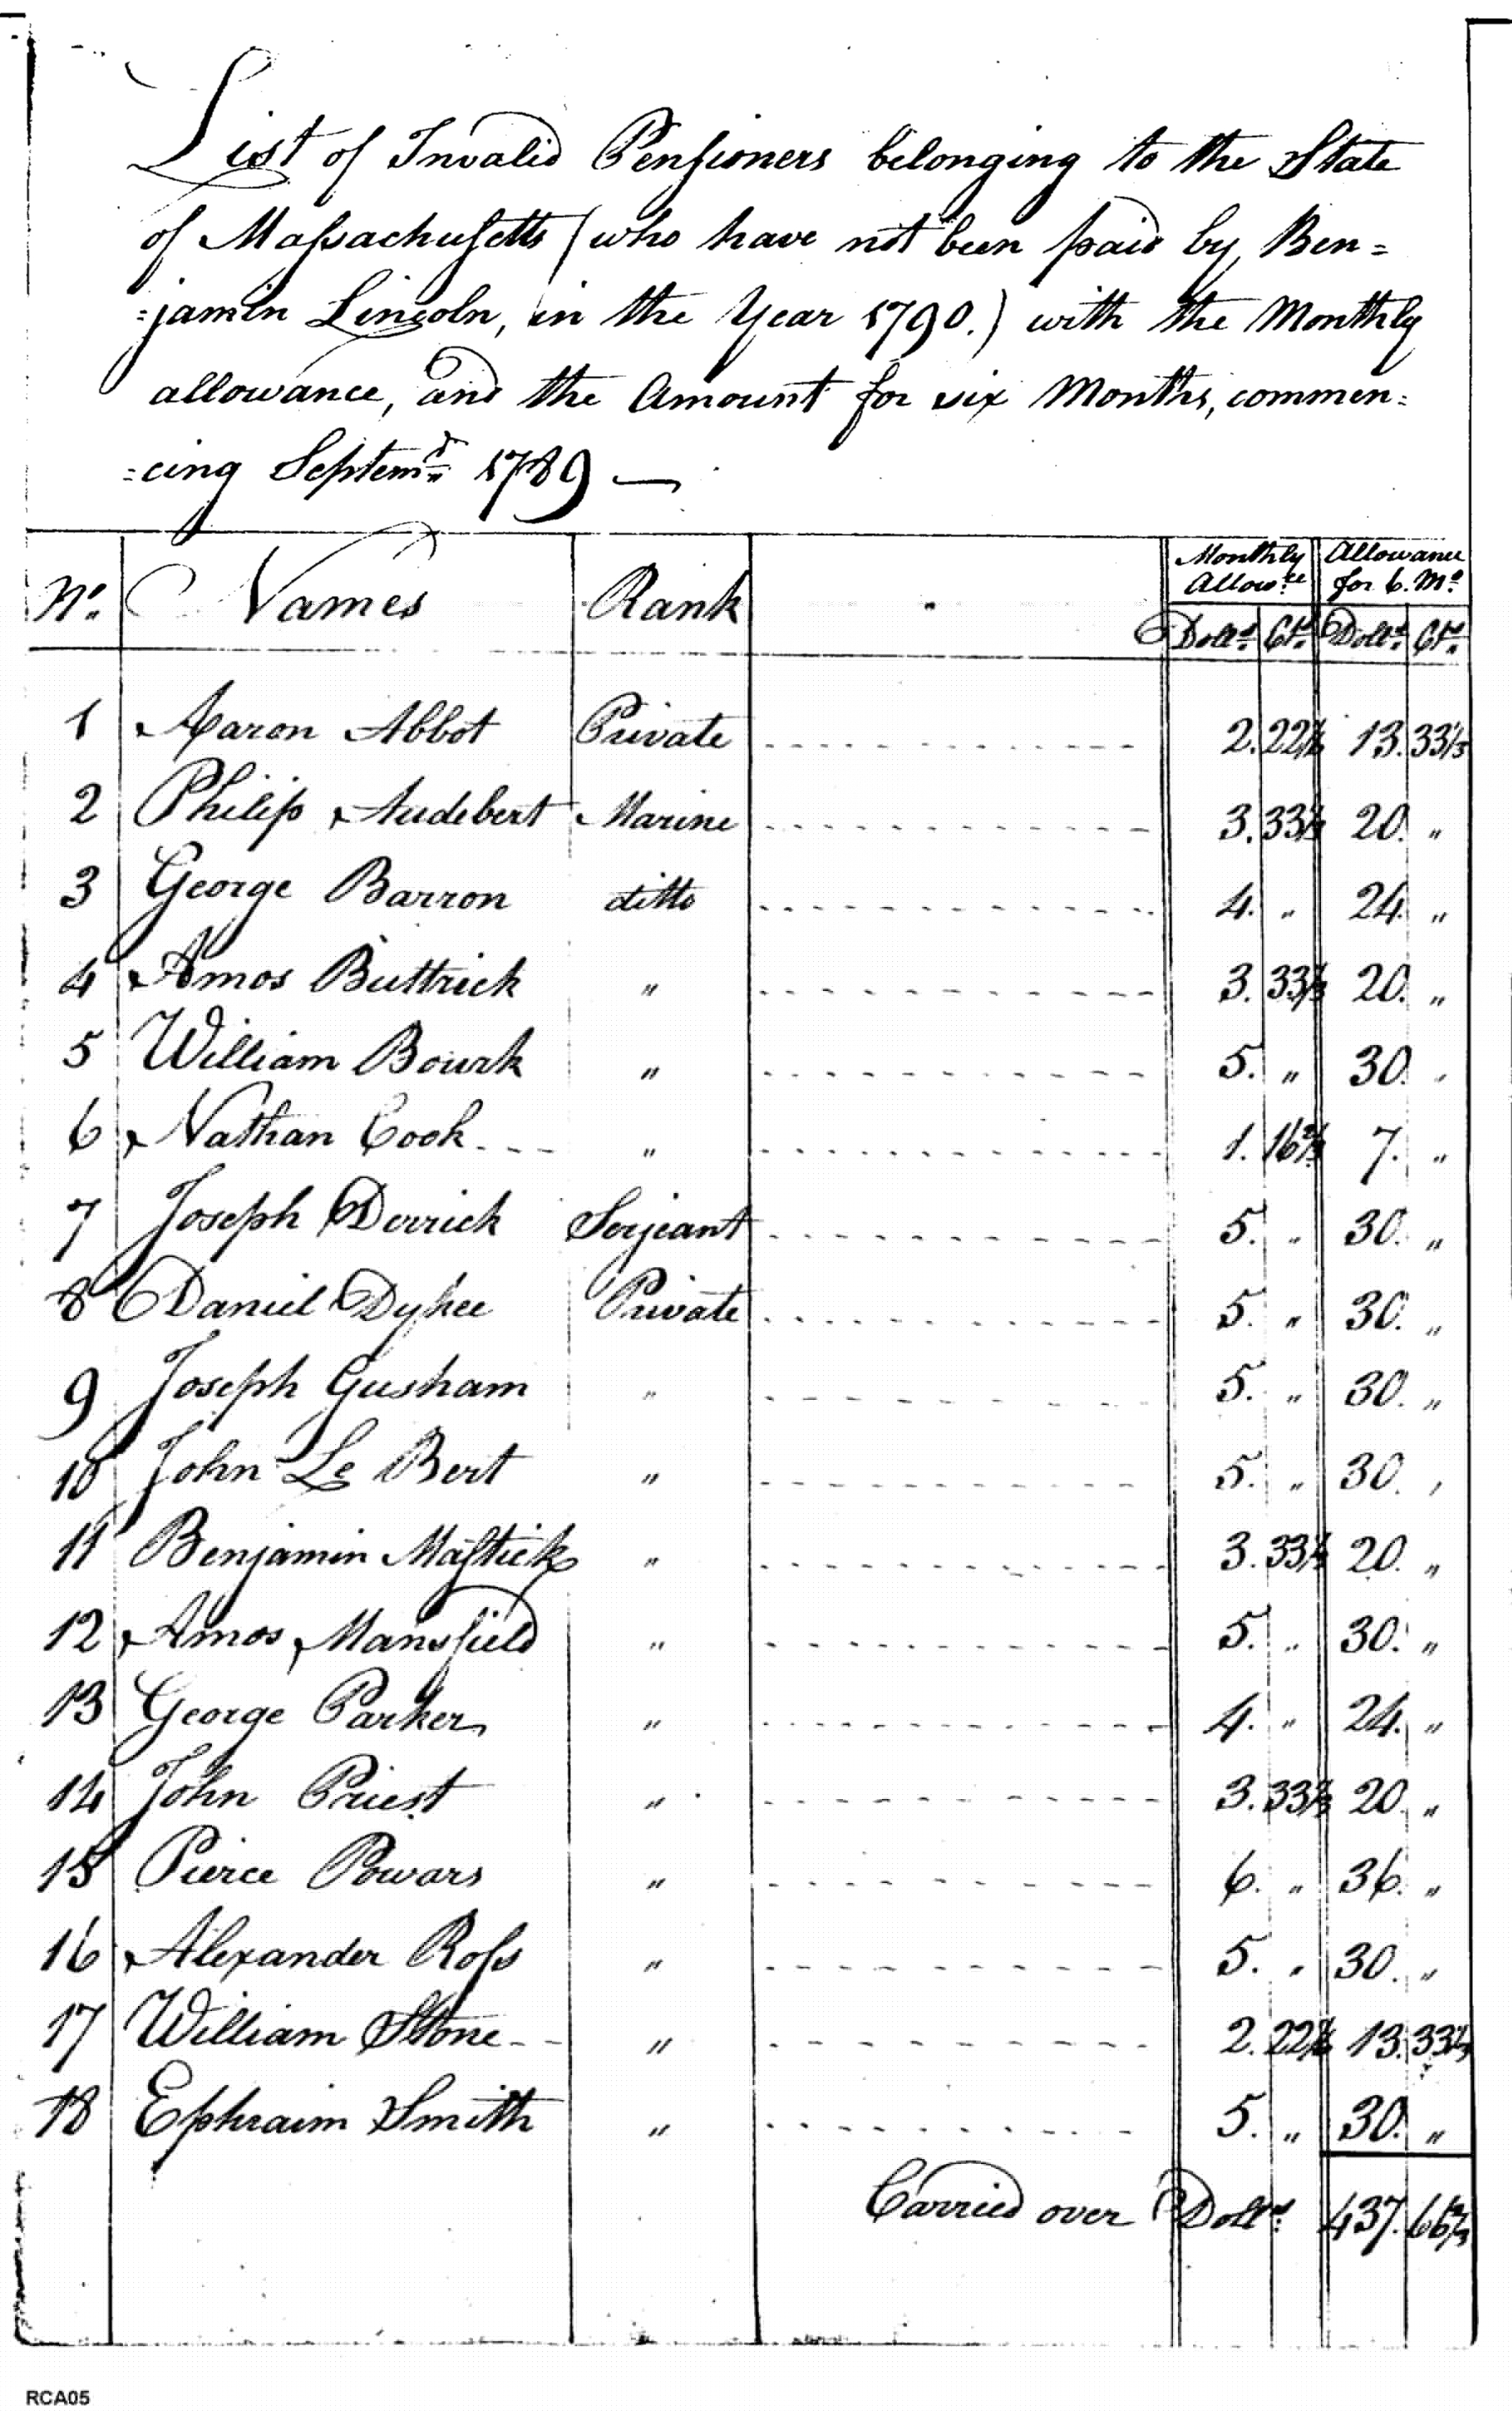 List of Invalid Pensioners belonging to the State
of Massachusetts (who have not been paid by Ben=
=jamin Lincoln, in the Year 1790.) with the Monthly
allowance, and the Amount for six Months, commen=
=cing Septemr. 1789 —
No. Names Rank Monthly Allowce. Allowance for 6. Mo.
Dolls. Cts. Dolls. Cts.
1 Aaron Abbot Private 2. 22 13. 33 1/3
2 Philip Audebert Marine 3. 33 1/3 20. "
3 George Barron ditto 4. " 24. "
4 Amos Buttrick " 3. 33 1/3 20. "
5 William Bourk " 5. " 30. "
6 Nathan Cook " 1. 16 2/3 7. "
7 Joseph Derrick Serjeant 5. " 30. "
8 Daniel Dyhee Private 5. " 30. "
9 Joseph Gusham " 5. " 30. "
10 John Le Bert " 5. " 30. "
11 Benjamin Mastick " 3. 33 1/3 20. "
12 Amos Mansfield " 5. " 30. "
13 George Parker " 4. " 24. "
14 John Priest " 3. 33 1/3 20. "
15 Pierce Powars " 6. " 36. "
16 Alexander Ross " 5. " 30. "
17 William Stone " 2. 22 13. 33 1/3
18 Ephraim Smith " 5. " 30. "
Carried over Dolls. 437. 66 2/3
RCA05